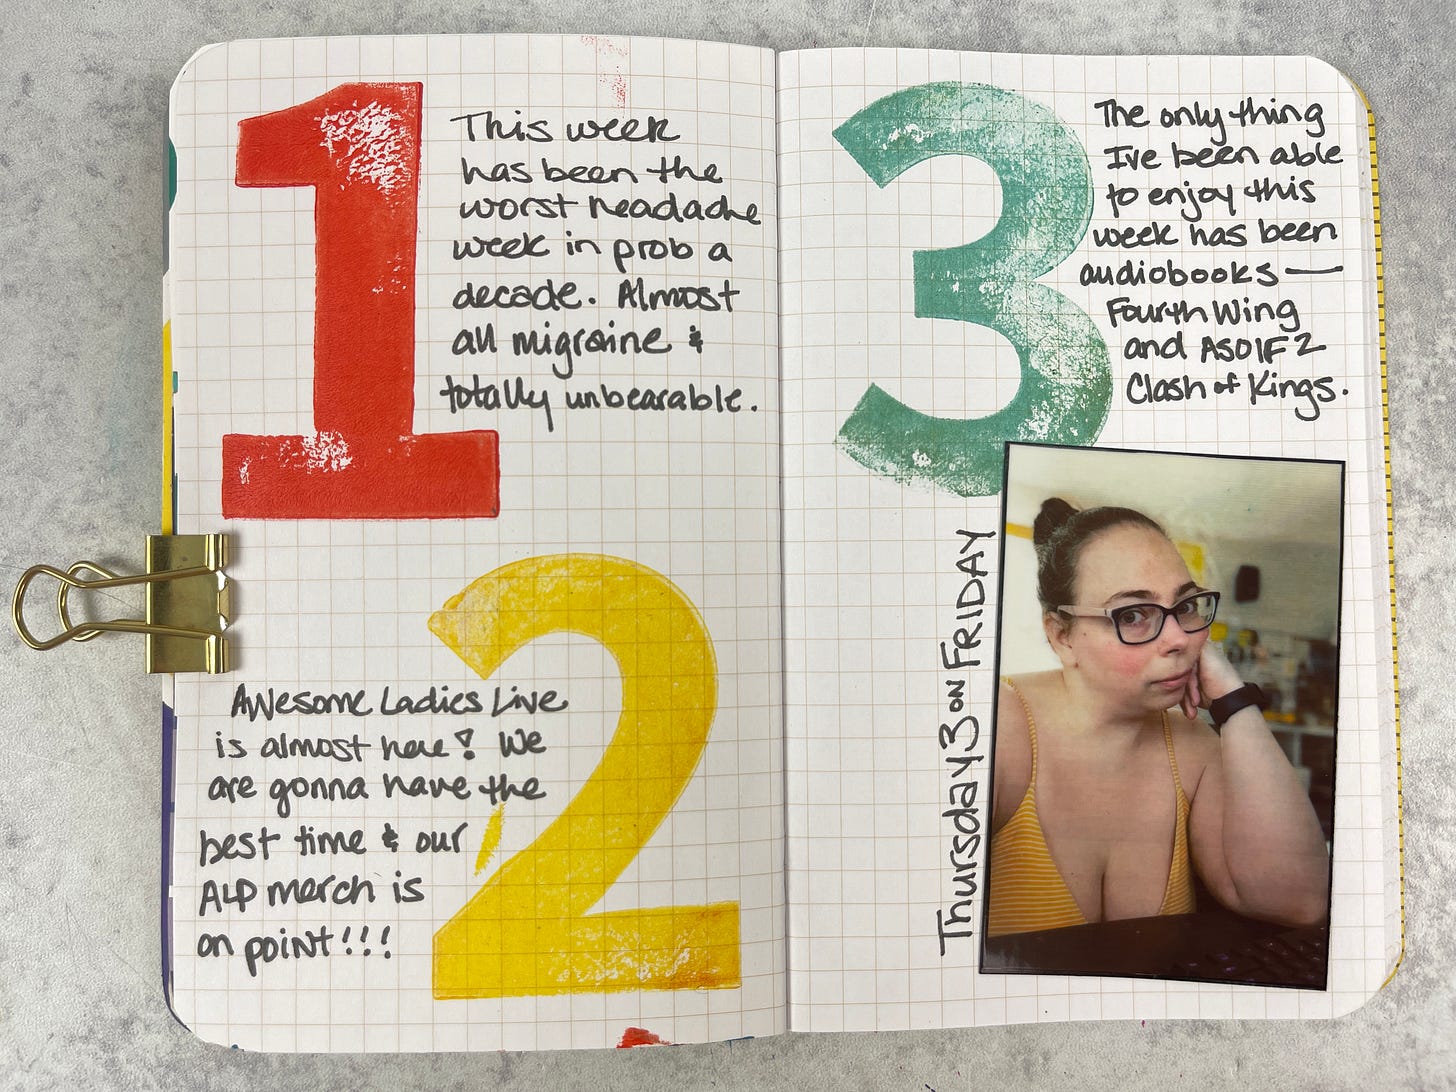 1
This week
has been the
worst headache
week in prob a
decade. Almost
all migraine &
totally unbearable.
2
Awesome Ladies Live
is almost here! We
are gonna have the
best time & our
ALP merch is
on point!!!
3
The only thing
I've been able
to enjoy this
week has been
audiobooks —
Fourth Wing
and ASOIF 2
Clash of Kings.
Thursday 3 on FRIDAY